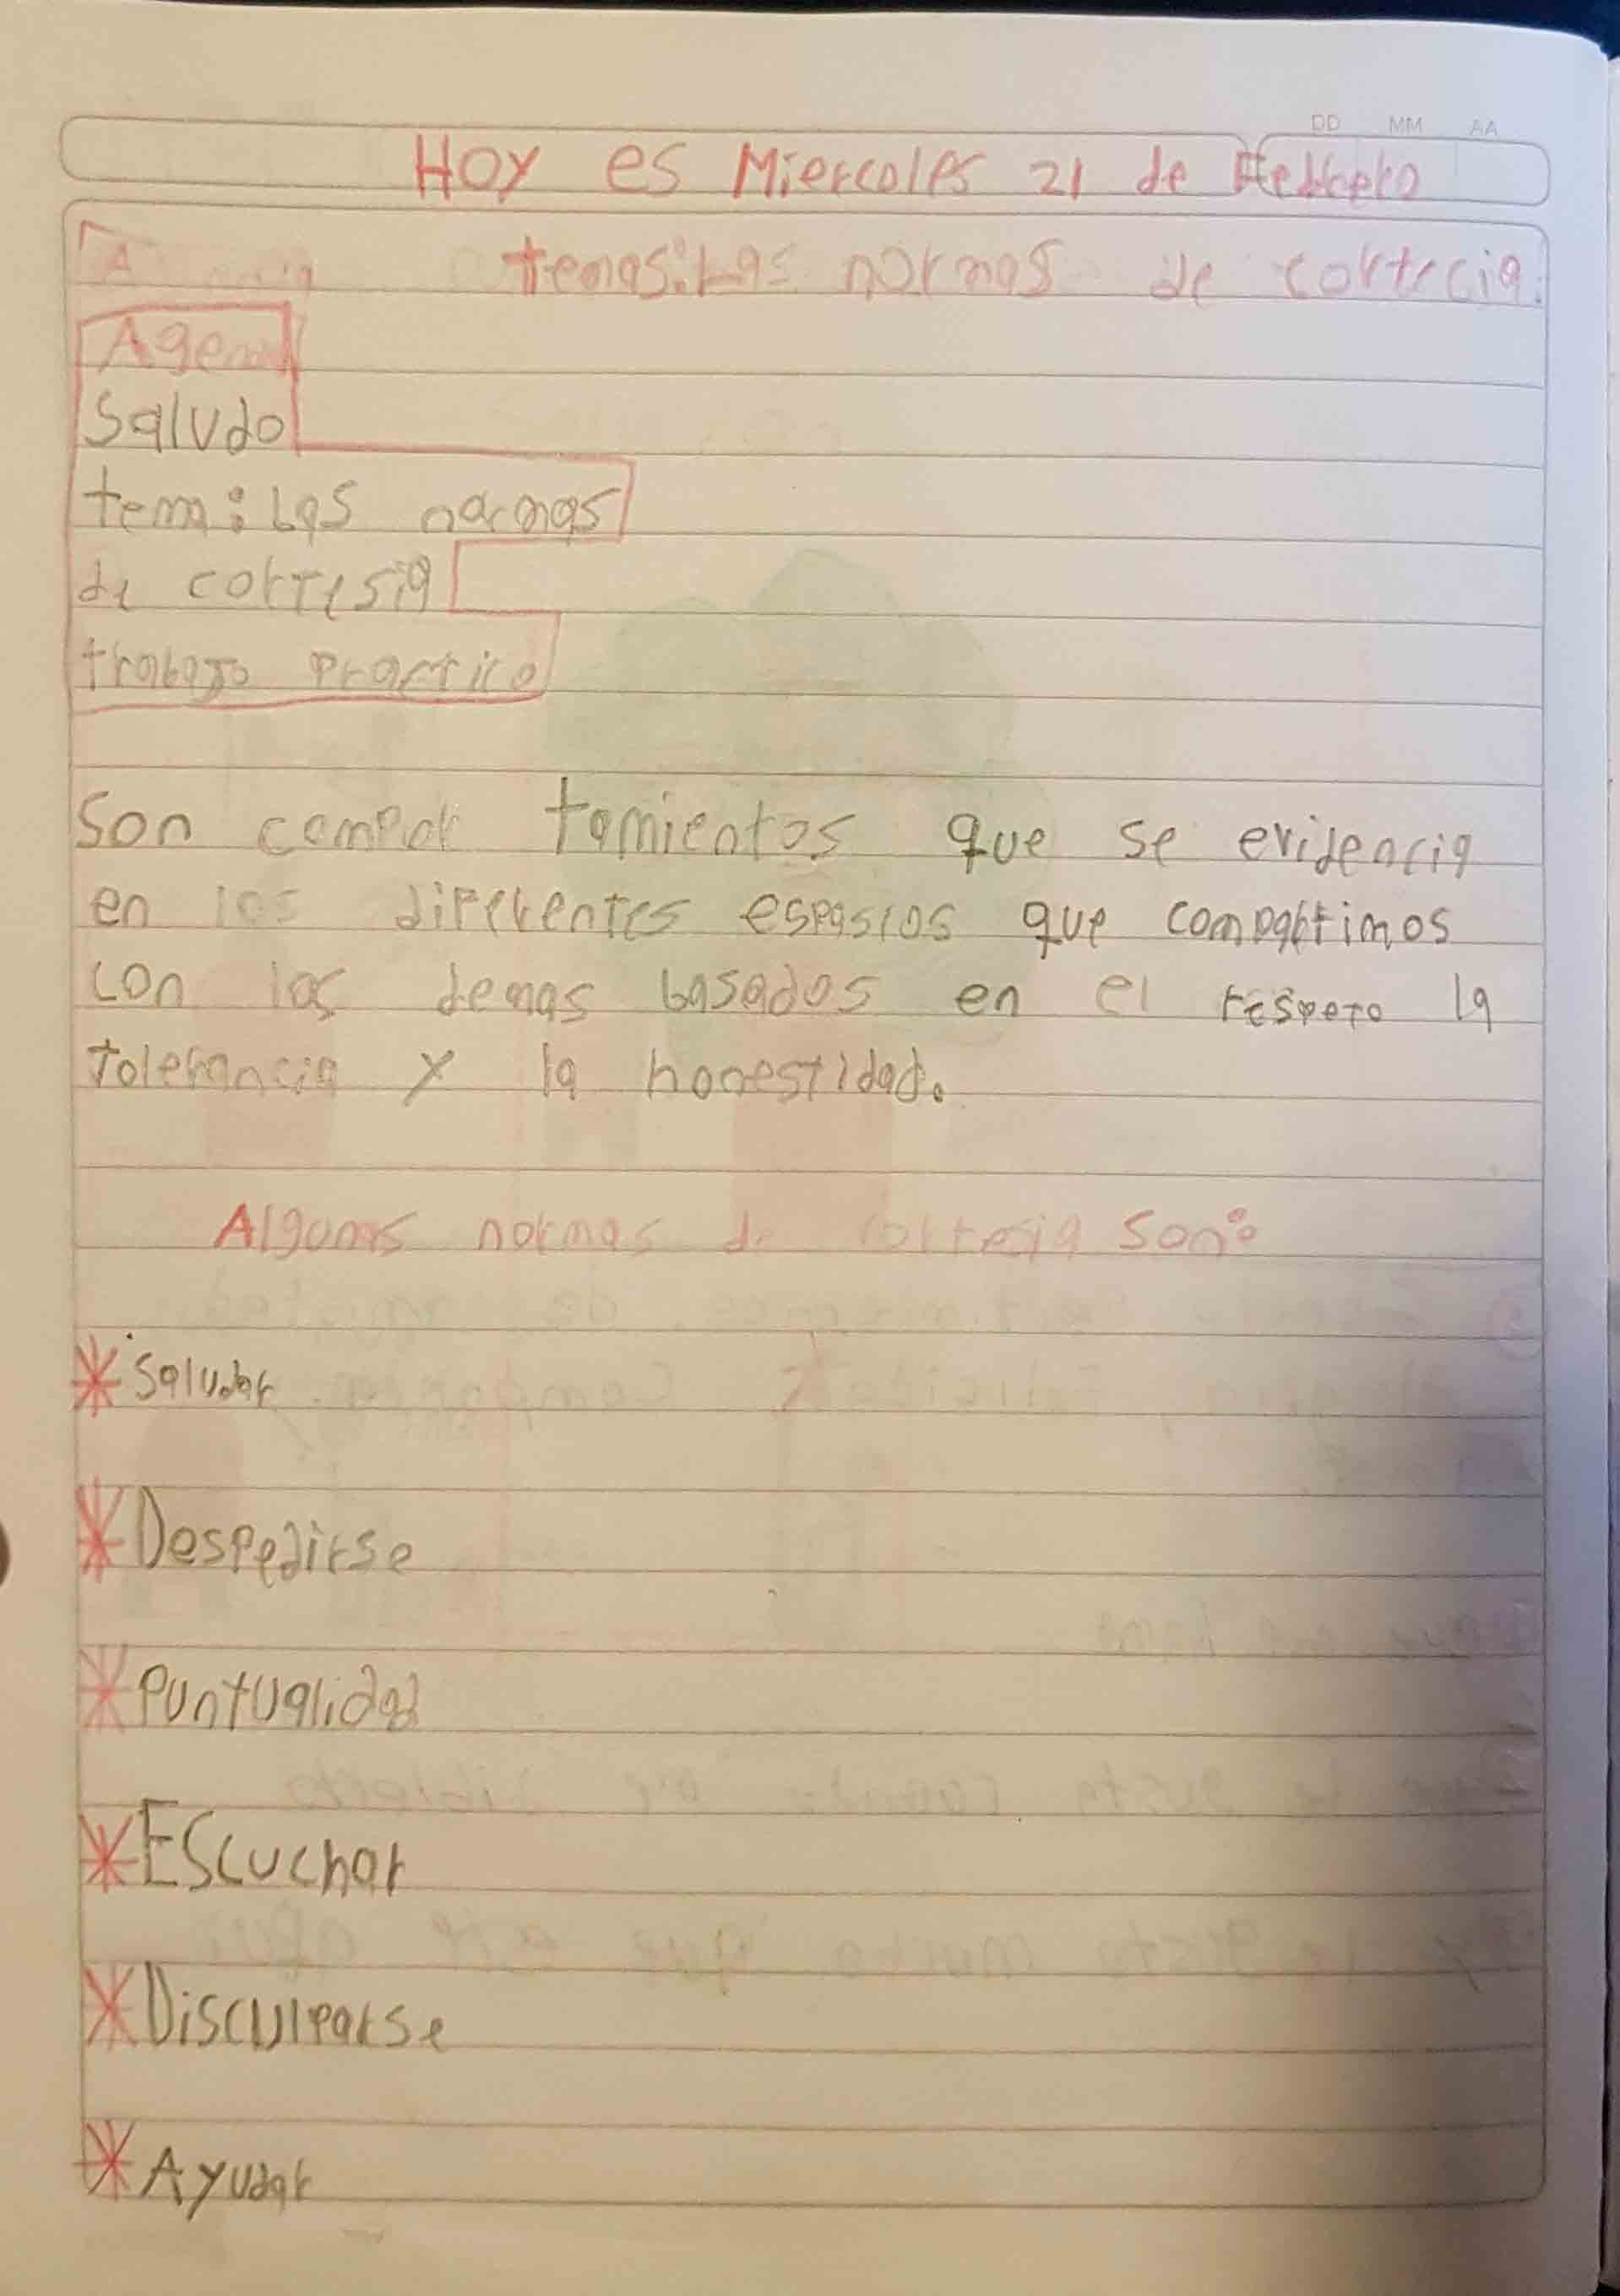 DD MM AA
Hoy es Miercoles 21 de Febrero
temas: Las normas de cortecia.
Agenda
Saludo
tema: Las normas
de cortesia
trabajo practico
Son compor tamientos que se evidencia
en los diferentes espasios que compartimos
con los demas basados en el respeto la
tolerancia y la honestidad.
Algunas normas de cortesia son:
* Saludar
* Despedirse
* Puntualidad
* Escuchar
* Disculparse
* Ayudar